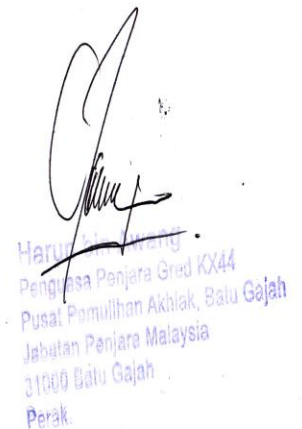 Harun bin Awang
Penguasa Penjara Gred KX44
Pusat Pemulihan Akhlak, Batu Gajah
Jabatan Penjara Malaysia
31000 Batu Gajah
Perak.